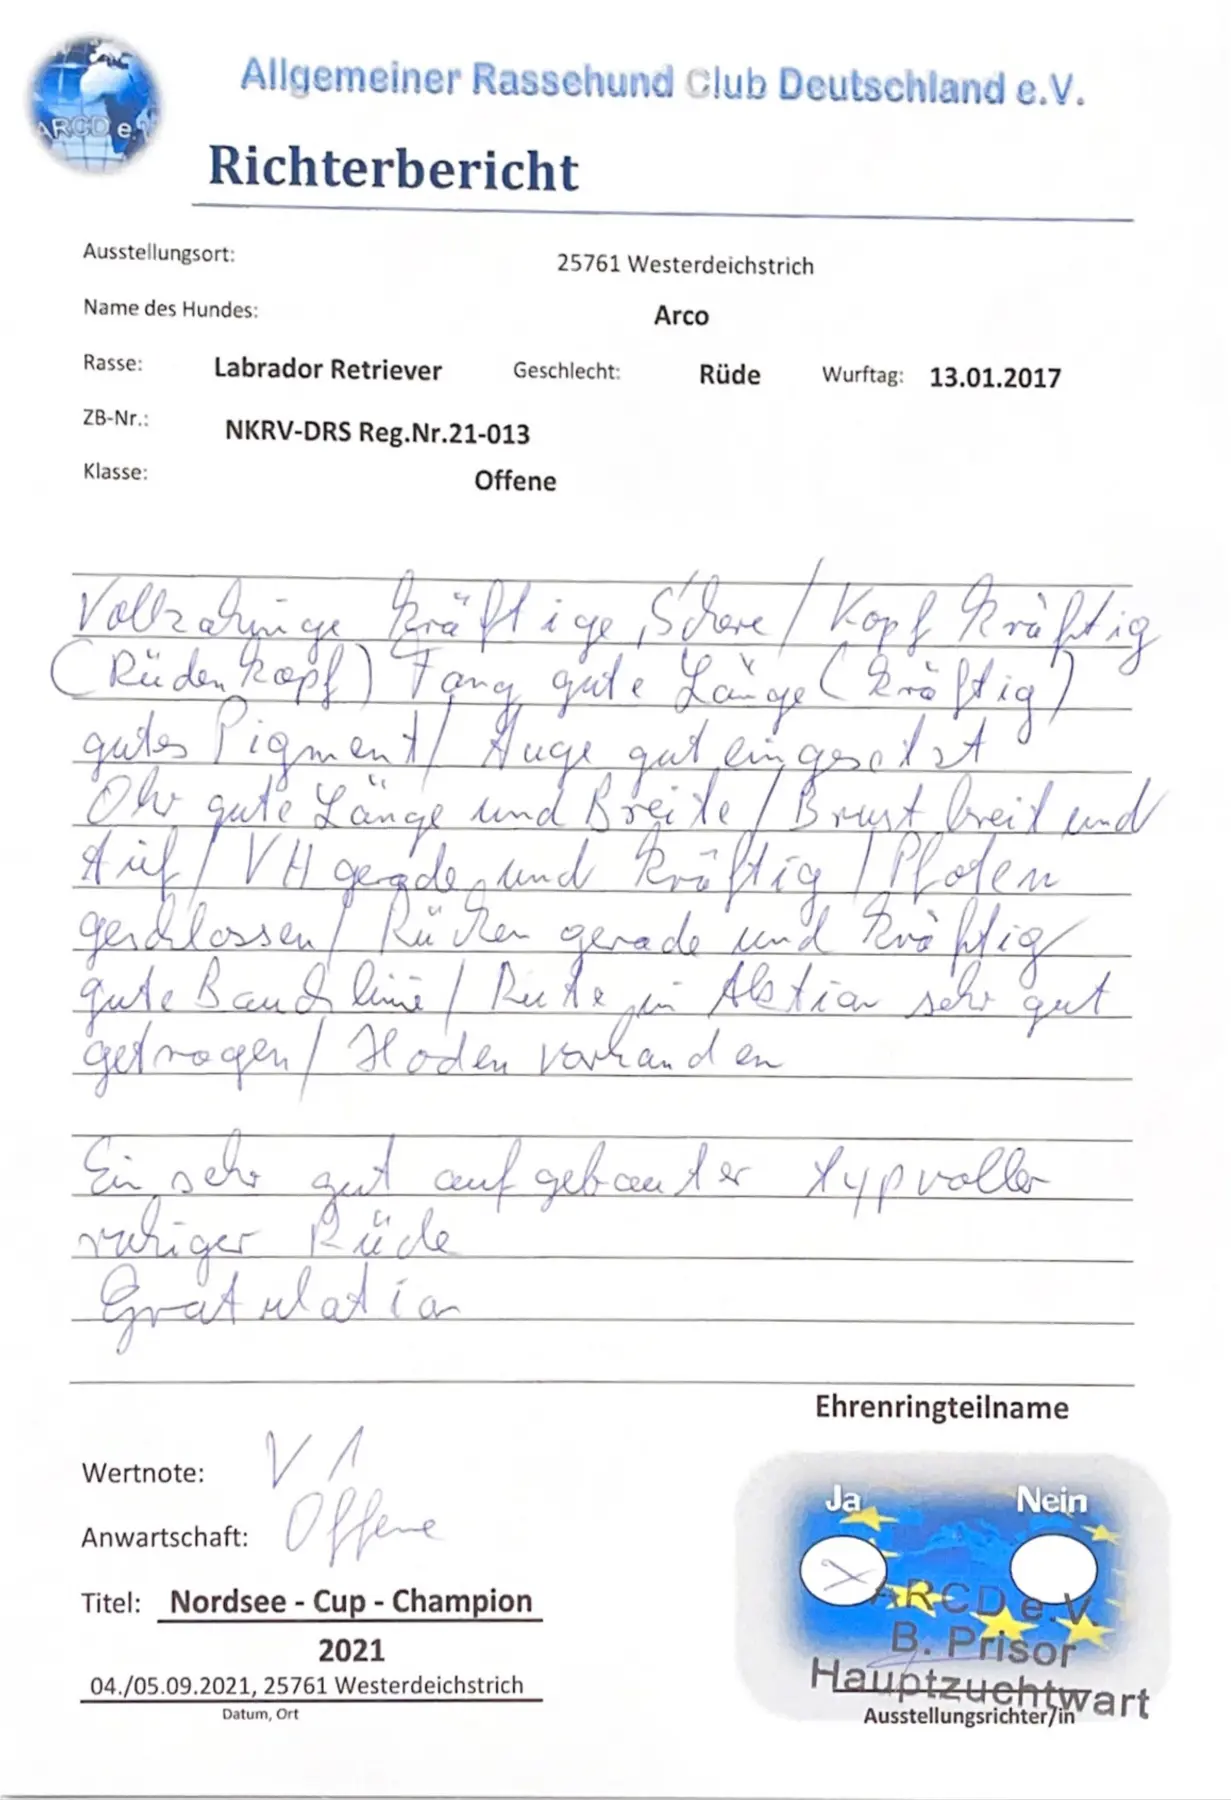 ARCD e.V.
Allgemeiner Rassehund Club Deutschland e.V.
Richterbericht
Ausstellungsort: 25761 Westerdeichstrich
Name des Hundes: Arco
Rasse: Labrador Retriever Geschlecht: Rüde Wurftag: 13.01.2017
ZB-Nr.: NKRV-DRS Reg.Nr.21-013
Klasse: Offene
Vollzahnige kräftige Schere / Kopf kräftig
(Rüdenkopf) Fang gute Länge (kräftig)
gutes Pigment / Auge gut eingesetzt
Ohr gute Länge und Breite / Brust breit und
tief / VH gerade und kräftig / Pfoten
geschlossen / Rücken gerade und kräftig
gute Bauchlinie / Rute in Aktion sehr gut
getragen / Hoden vorhanden
Ein sehr gut aufgebauter typvoller
ruhiger Rüde
Gratulation
Ehrenringteilname
Wertnote: V 1
Ja Nein
Anwartschaft: Offene
Titel: Nordsee - Cup - Champion
2021
04./05.09.2021, 25761 Westerdeichstrich
Datum, Ort
ARCD e.V.
B. Prisor
Hauptzuchtwart
Ausstellungsrichter/in